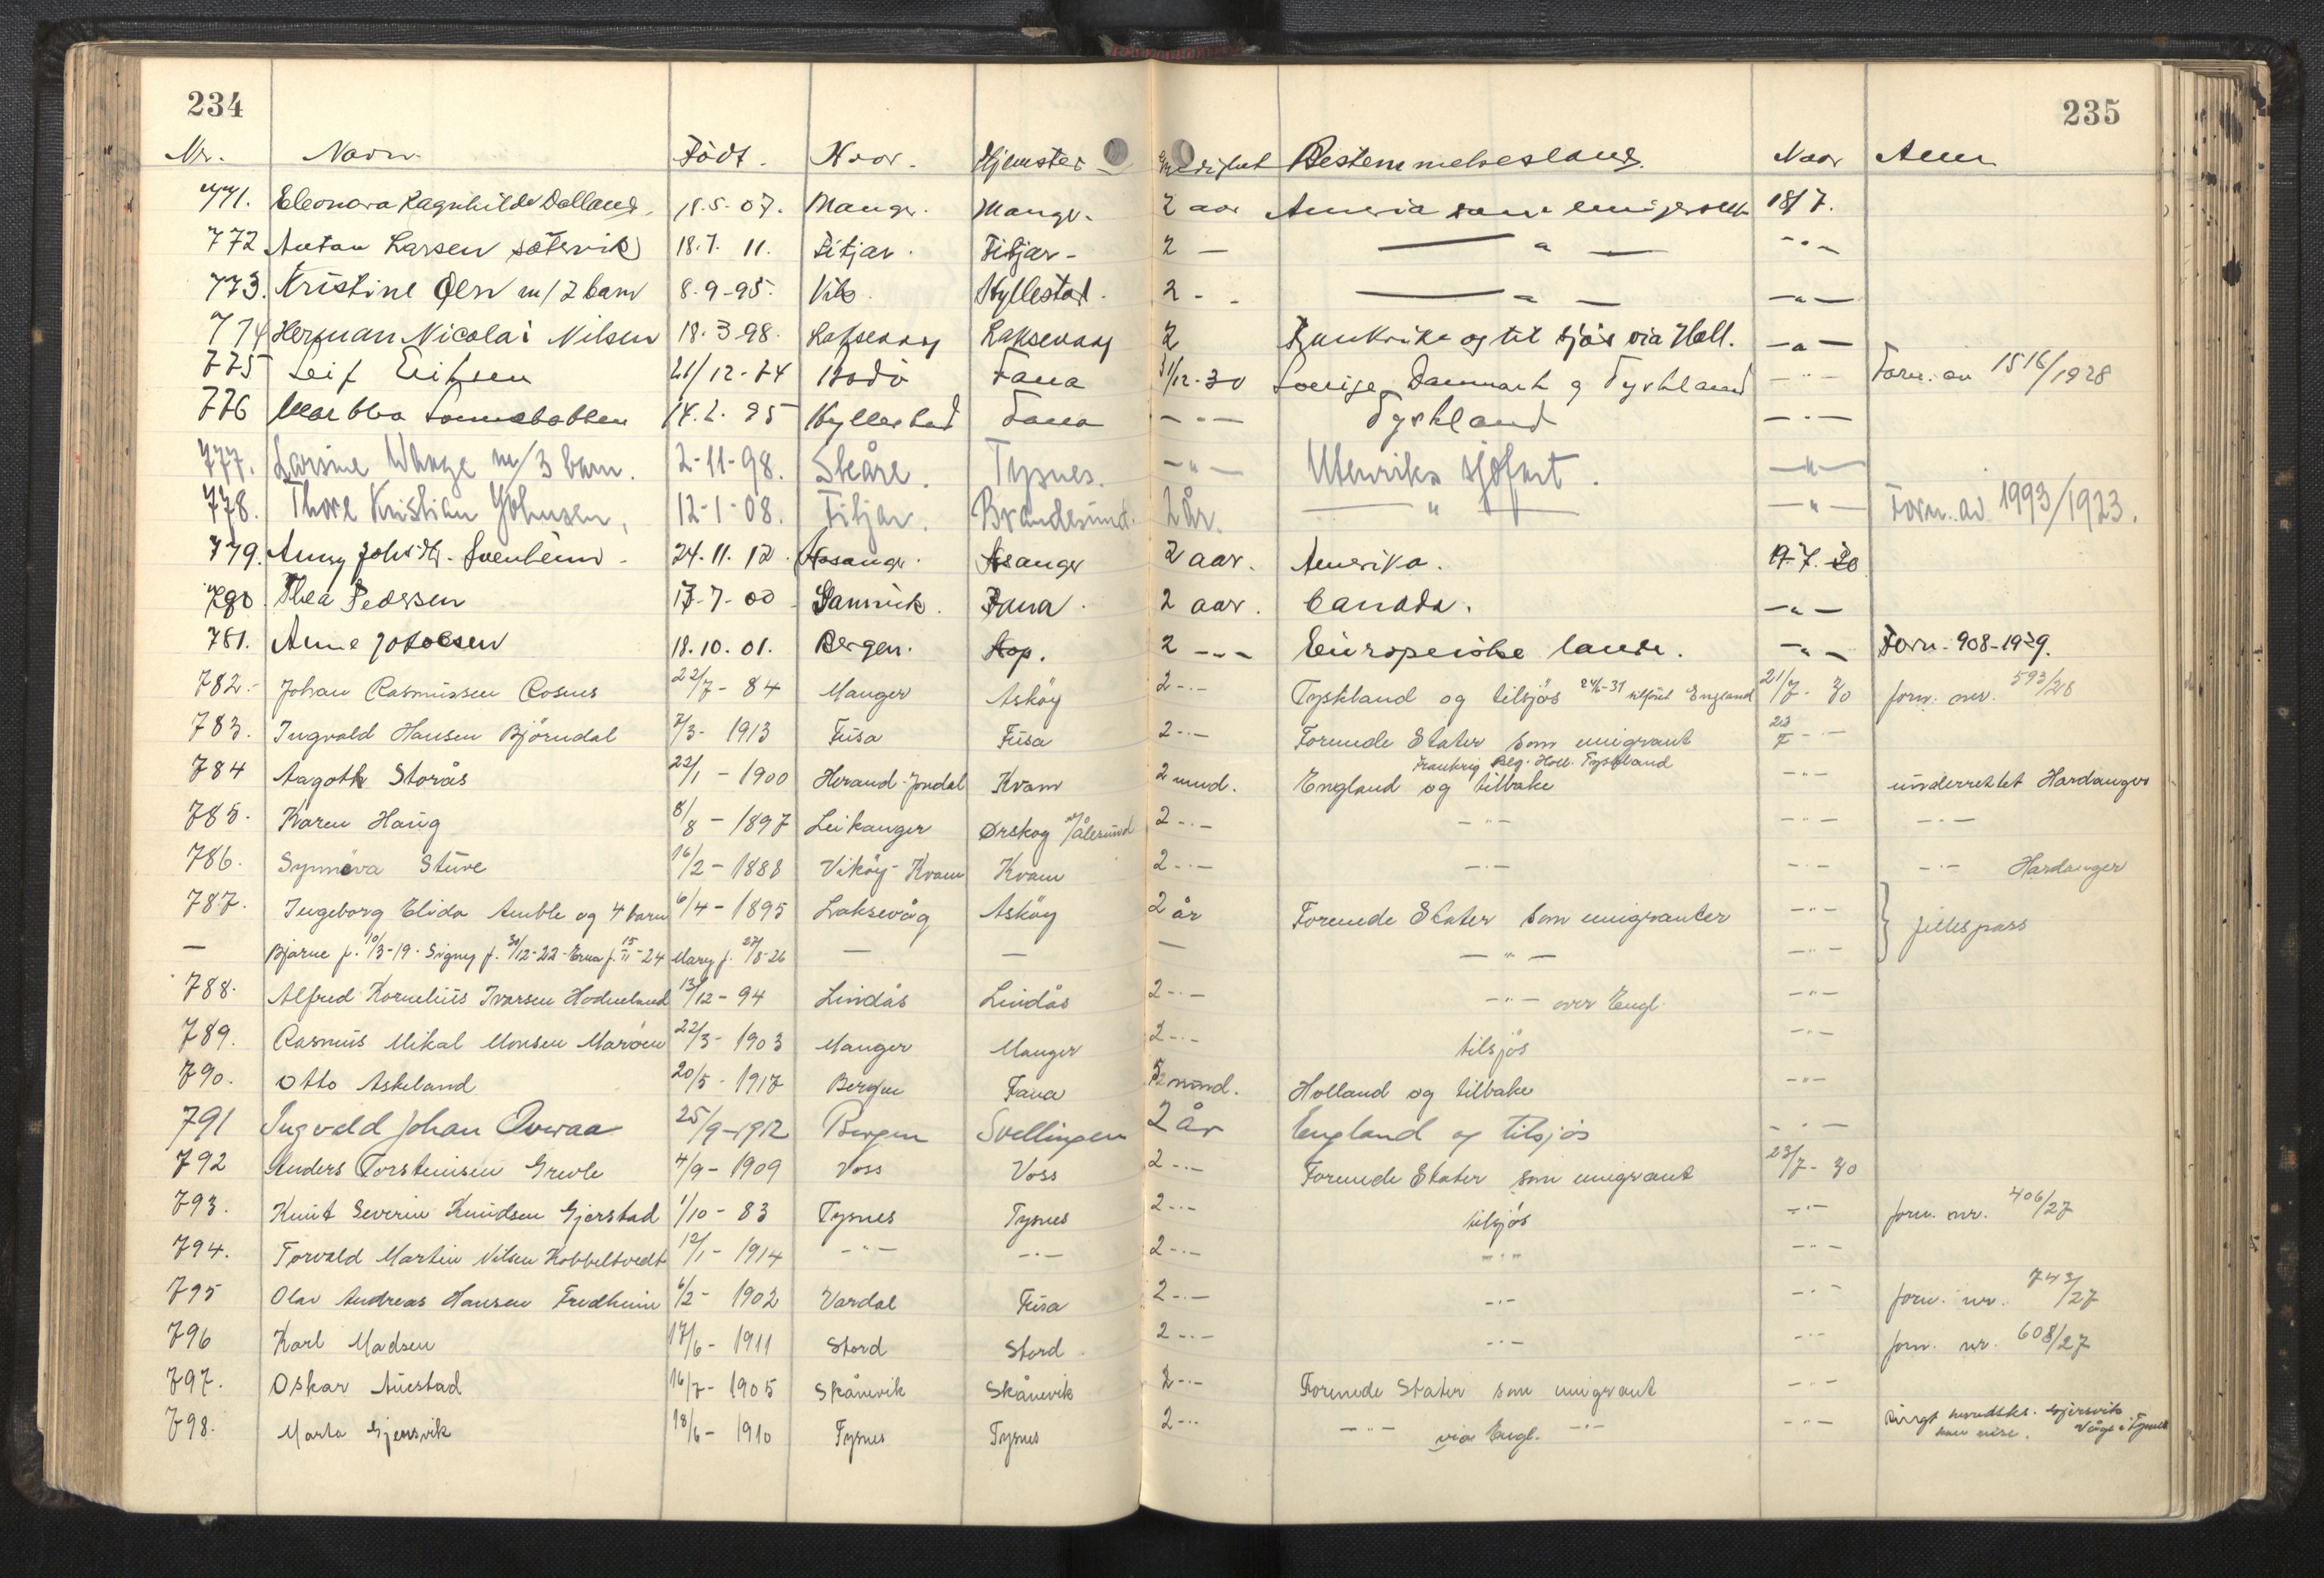 234
235
Nr. Navn Födt. Hvor. Hjemsted Gyldighet Bestemmelsesland. Naar Anm
771. Eleonora Ragnhilda Dalland. 18.5-07. Manger. Mangr. 2 aar Ameria som emigrant 18/7.
772 Anton Larsen Sætervik 18.7. 11. Fitjar. Fitjar - 2 — — " — - " -
773. Kristine Olsen m/2 barn 8-9-95. Vik. Hyllestad. 2 - - — " — — " —
774 Herman Nicolai Nilsen 18.3-98. Laksevaag Laksevaag 2 Frankrike og til sjøs via Holl. — " —
775 Leif Eriksen 21/12-74 Bodö Fana 31/12-30 Sverige, Danmark og Tyskland — " — Forn. av 1516/1928
776 14.2. 95 Hyllestad Fana — " — Tyskland — " —
777. Larsine Wange m/3 barn. 2-11-98. Skåre. Tysnes. — " — Utenriks sjøfart. — " —
778. Thore Kristian Johnsen, 12-1-08. Fitjar. Brandesund. 2 år. — " — — " — Forn. av 1993/1923.
779. Anny Johsdtr. Svenheim. 24.11.12. Aasanger. Aasanger 2 aar. Amerika. 19.7.30
780. Thea Pedersen 17-7-00 Samnick. Fana. 2 aar. Canada. — " —
781. Anne Jakobsen 18.10.01. Bergen. Hop. 2 - " - Europeiske lande. — " — Forn. 908-1929.
782.- Johan Rasmussen Rosnes 22/7-84 Manger Asköy 2 - " - Tyskland og tilsjös 24/6-31 tilföiet England 21/7-30 forn. nr. 593/28
783. Ingvald Hansen Björndal 7/3-1913 Fusa Fusa 2 - " - Forenede Stater som emigrant 23/7 - " -
784 Aagoth Storås 22/1-1900 Herand-Jondal Kvam 2 mnd. England og tilbake Frankrig Belg. Holl. Tyskland - " - underrettet Hardanger
785. Karen Haug 8/8-1897 Leikanger Ørskog v/Ålesund 2 - " - - " - - " -
786. Synnöva Stuve 16/2-1888 Viköy-Kvam Kvam 2 - " - - " - - " - - " - Hardanger
787. Ingeborg Elida Amble og 4 barn 6/4-1895 Laksevåg Asköy 2 år Forenede Stater som emigranter - " - fellespass
— Bjarne f. 10/3-19. Signy f. 30/12-22- Erna f. 15/11-24 Mary f. 27/8-26 — — — — " — - " -
788. Alfred Kornelius Ivarsen Hodneland 13/12-94 Lindås Lindås 2 - " - - " - over Engl. - " -
789. Rasmus Mikal Monsen Maröen 22/3-1903 Manger Manger 2 - " - tilsjös - " -
790. Otto Askeland 20/5-1917 Bergen Fana 2 mnd. Holland og tilbake - " -
791 Ingvald Johan Överaa 25/9-1912 Bergen Svellingen 2 år England og tilsjös - " -
792 Anders Torsteinsen Grevle 4/9-1909 Voss Voss 2 - " - Forenede Stater som emigrant 23/7-30
793. Knut Severin Knudsen Gjerstad 1/10-83 Tysnes Tysnes 2 - " - tilsjös - " - forn. nr. 406/27
794. Torvald Martin Nilsen Kobbeltvedt 12/1-1914 - " - - " - 2 - " - - " - - " -
795 Olav Andreas Hansen Fredheim 6/2-1902 Vardal Fusa 2 - " - - " - - " - forn. nr. 743/27
796 Karl Madsen 17/6-1911 Stord Stord 2 - " - - " - - " - forn. nr. 608/27
797. Oskar Auestad 16/7-1905 Skånevik Skånevik 2 - " - Forenede Stater som emigrant - " -
798. Marta Gjersvik 18/6-1910 Tysnes Tysnes 2 - " - - " - via Engl. - " - - " - Ringt Gjersvik Våge i Tysnes
kan reise.